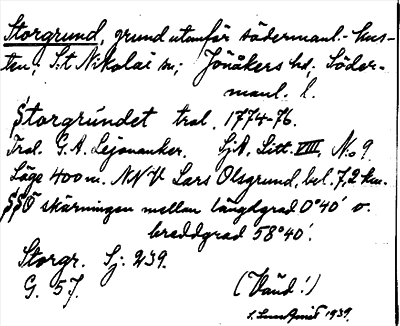 Storgrund, grund utanför södermanl.-kus-
ten, S:t Nikolai sn; Jönåkers hd, Söder-
manl. l.
Storgrundet trol. 1774-76.
Trol. G. A. Lejonanker. SjA, Litt. VIII, No 9.
Läge 400 m. NNV Lars Olsgrund, bel. 7,2 km.
SSÖ skärningen mellan längdgrad 0°40' o.
breddgrad 58°40'.
Storgr. Sj: 239.
G. 57.
(Vänd!)
1939.